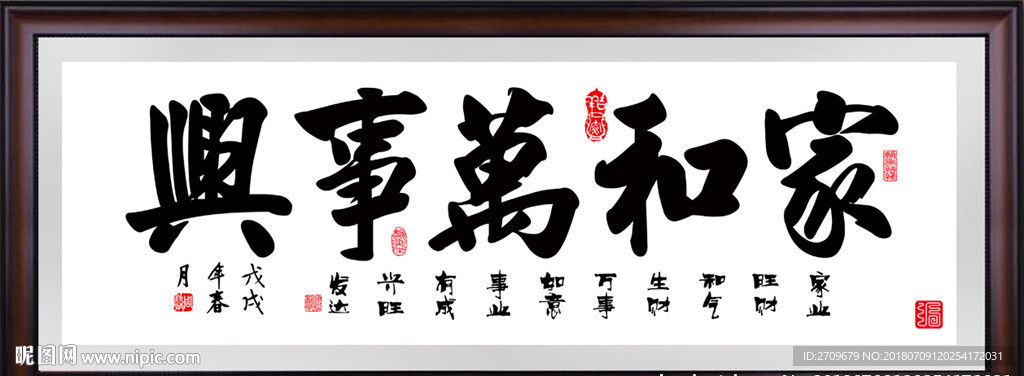 家和萬事興
家业旺财和气生财万事如意事业有成兴旺发达
戊戌年春月
昵图网 www.nipic.com
ID:2709679 NO:20180709120254172031